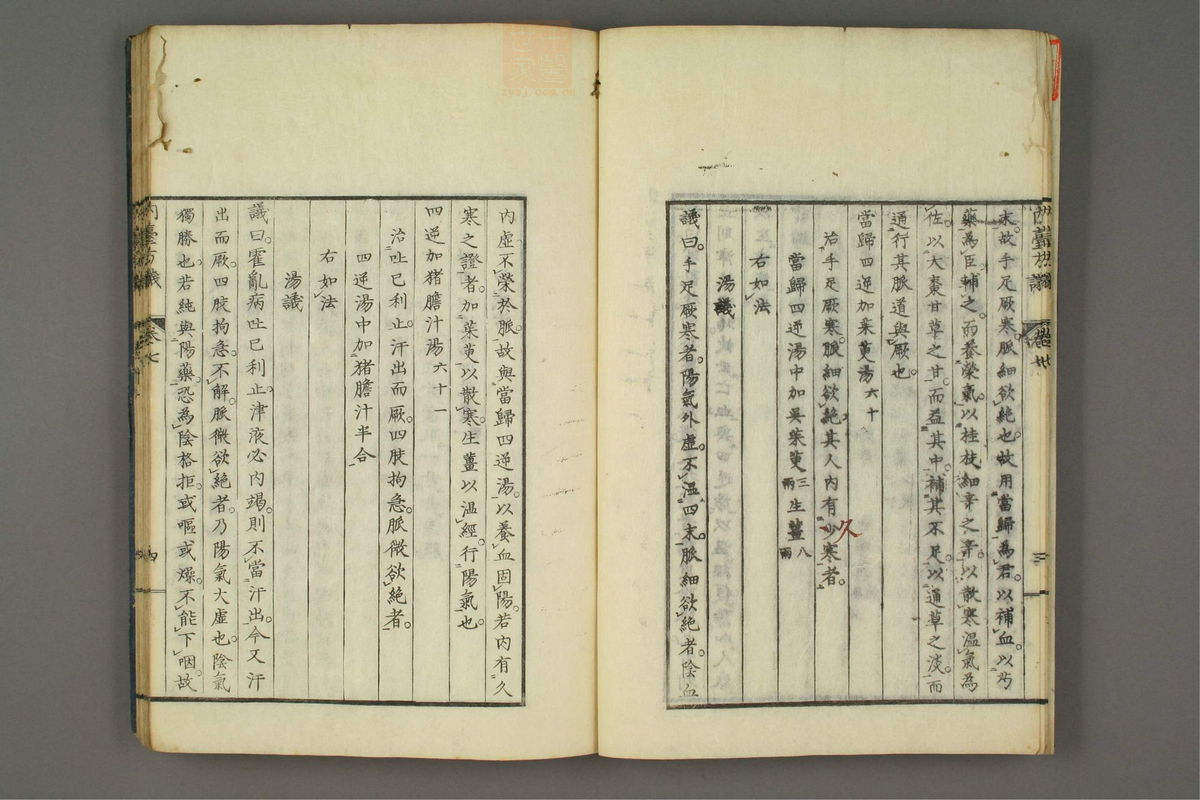 末故手足厥寒脈細欲絶也故用當歸為君以補血以芍
藥為臣輔之而養榮氣以桂枝細辛之辛以散寒温氣為
佐以大棗甘草之甘而益其中補其不足以通草之淡而
通行其脈道與厥也
當歸四逆加茱萸湯六十
治手足厥寒脈細欲絶其人內有少寒者
久
當歸四逆湯中加吳茱萸三兩生薑八兩
右如法
湯議
議曰手足厥寒者陽氣外虛不温四末脈細欲絶者陰血
內虛不榮於脈故與當歸四逆湯以養血固陽若內有久
寒之證者加茱萸以散寒生薑以温經行陽氣也
四逆加猪膽汁湯六十一
治吐已利止汗出而厥四肢拘急脈微欲絶者
四逆湯中加猪膽汁半合
右如法
湯議
議曰霍亂病吐已利止津液必內竭則不當汗出今又汗
出而厥四肢拘急不解脈微欲絶者乃陽氣大虛也陰氣
獨勝也若純與陽藥恐為陰格拒或嘔或燥不能下咽故
內臺方議 卷七 四